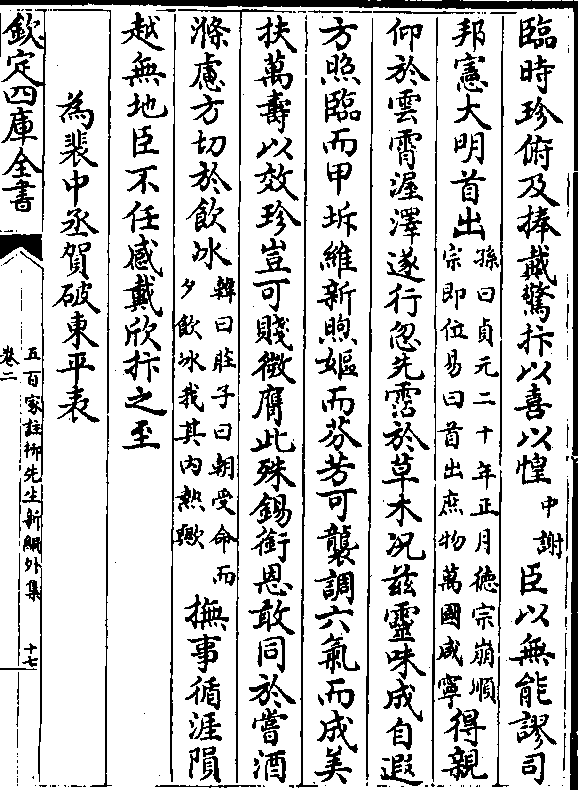 臨時珍俯及捧戴驚抃以喜以惶中謝臣以無能謬司
邦憲大明首出孫曰貞元二十年正月徳宗崩順宗即位易曰首出庶物萬國咸寧得親
仰於雲霄渥澤遂行忽先霑於草木况兹靈味成自遐
方照臨而甲坼維新煦嫗而芬芳可襲調六氣而成美
扶萬壽以效珍豈可賤微膺此殊錫銜恩敢同於嘗酒
滌慮方切於飲冰韓曰莊子曰朝受命而夕飲冰我其内熱歟撫事循涯隕
越無地臣不任感戴欣抃之至
為裴中丞賀破東平表
欽定四庫全書
五百家註栁先生新編外集
卷二
十七